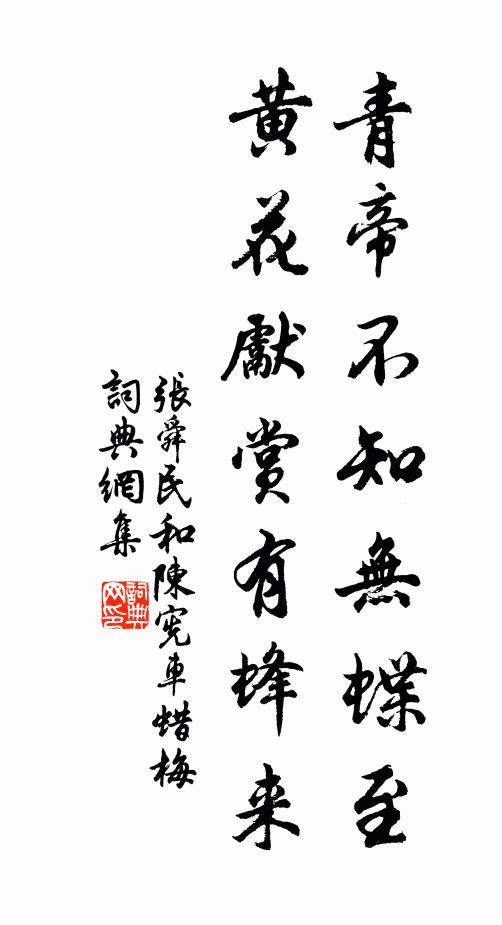 青帝不知無蝶至
黄花獻賞有蜂来
張舜民和陳憲車蜡梅
詞典網集
詞典网印